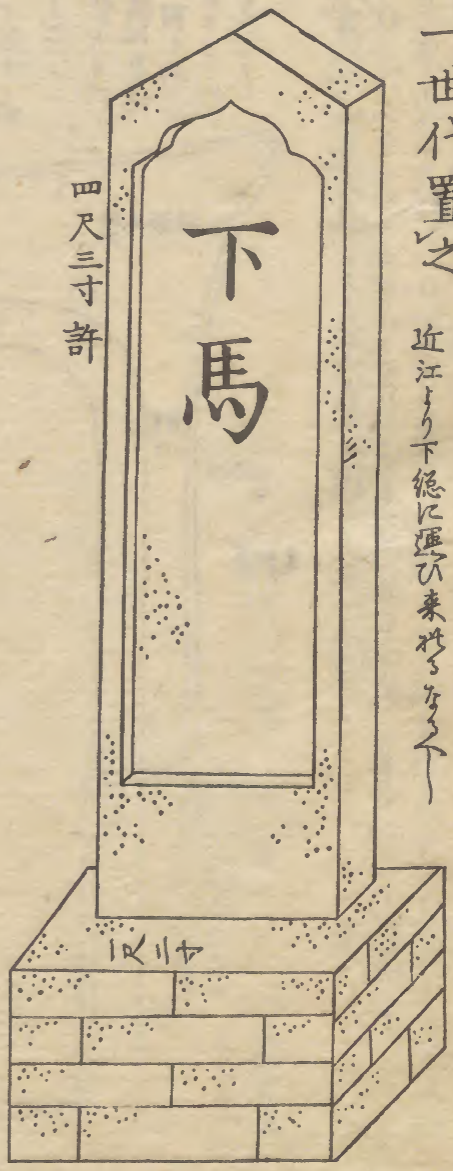 一世代置レ之
近江より下総に運び来れるなるべし
下馬
四尺三寸許
一尺三寸